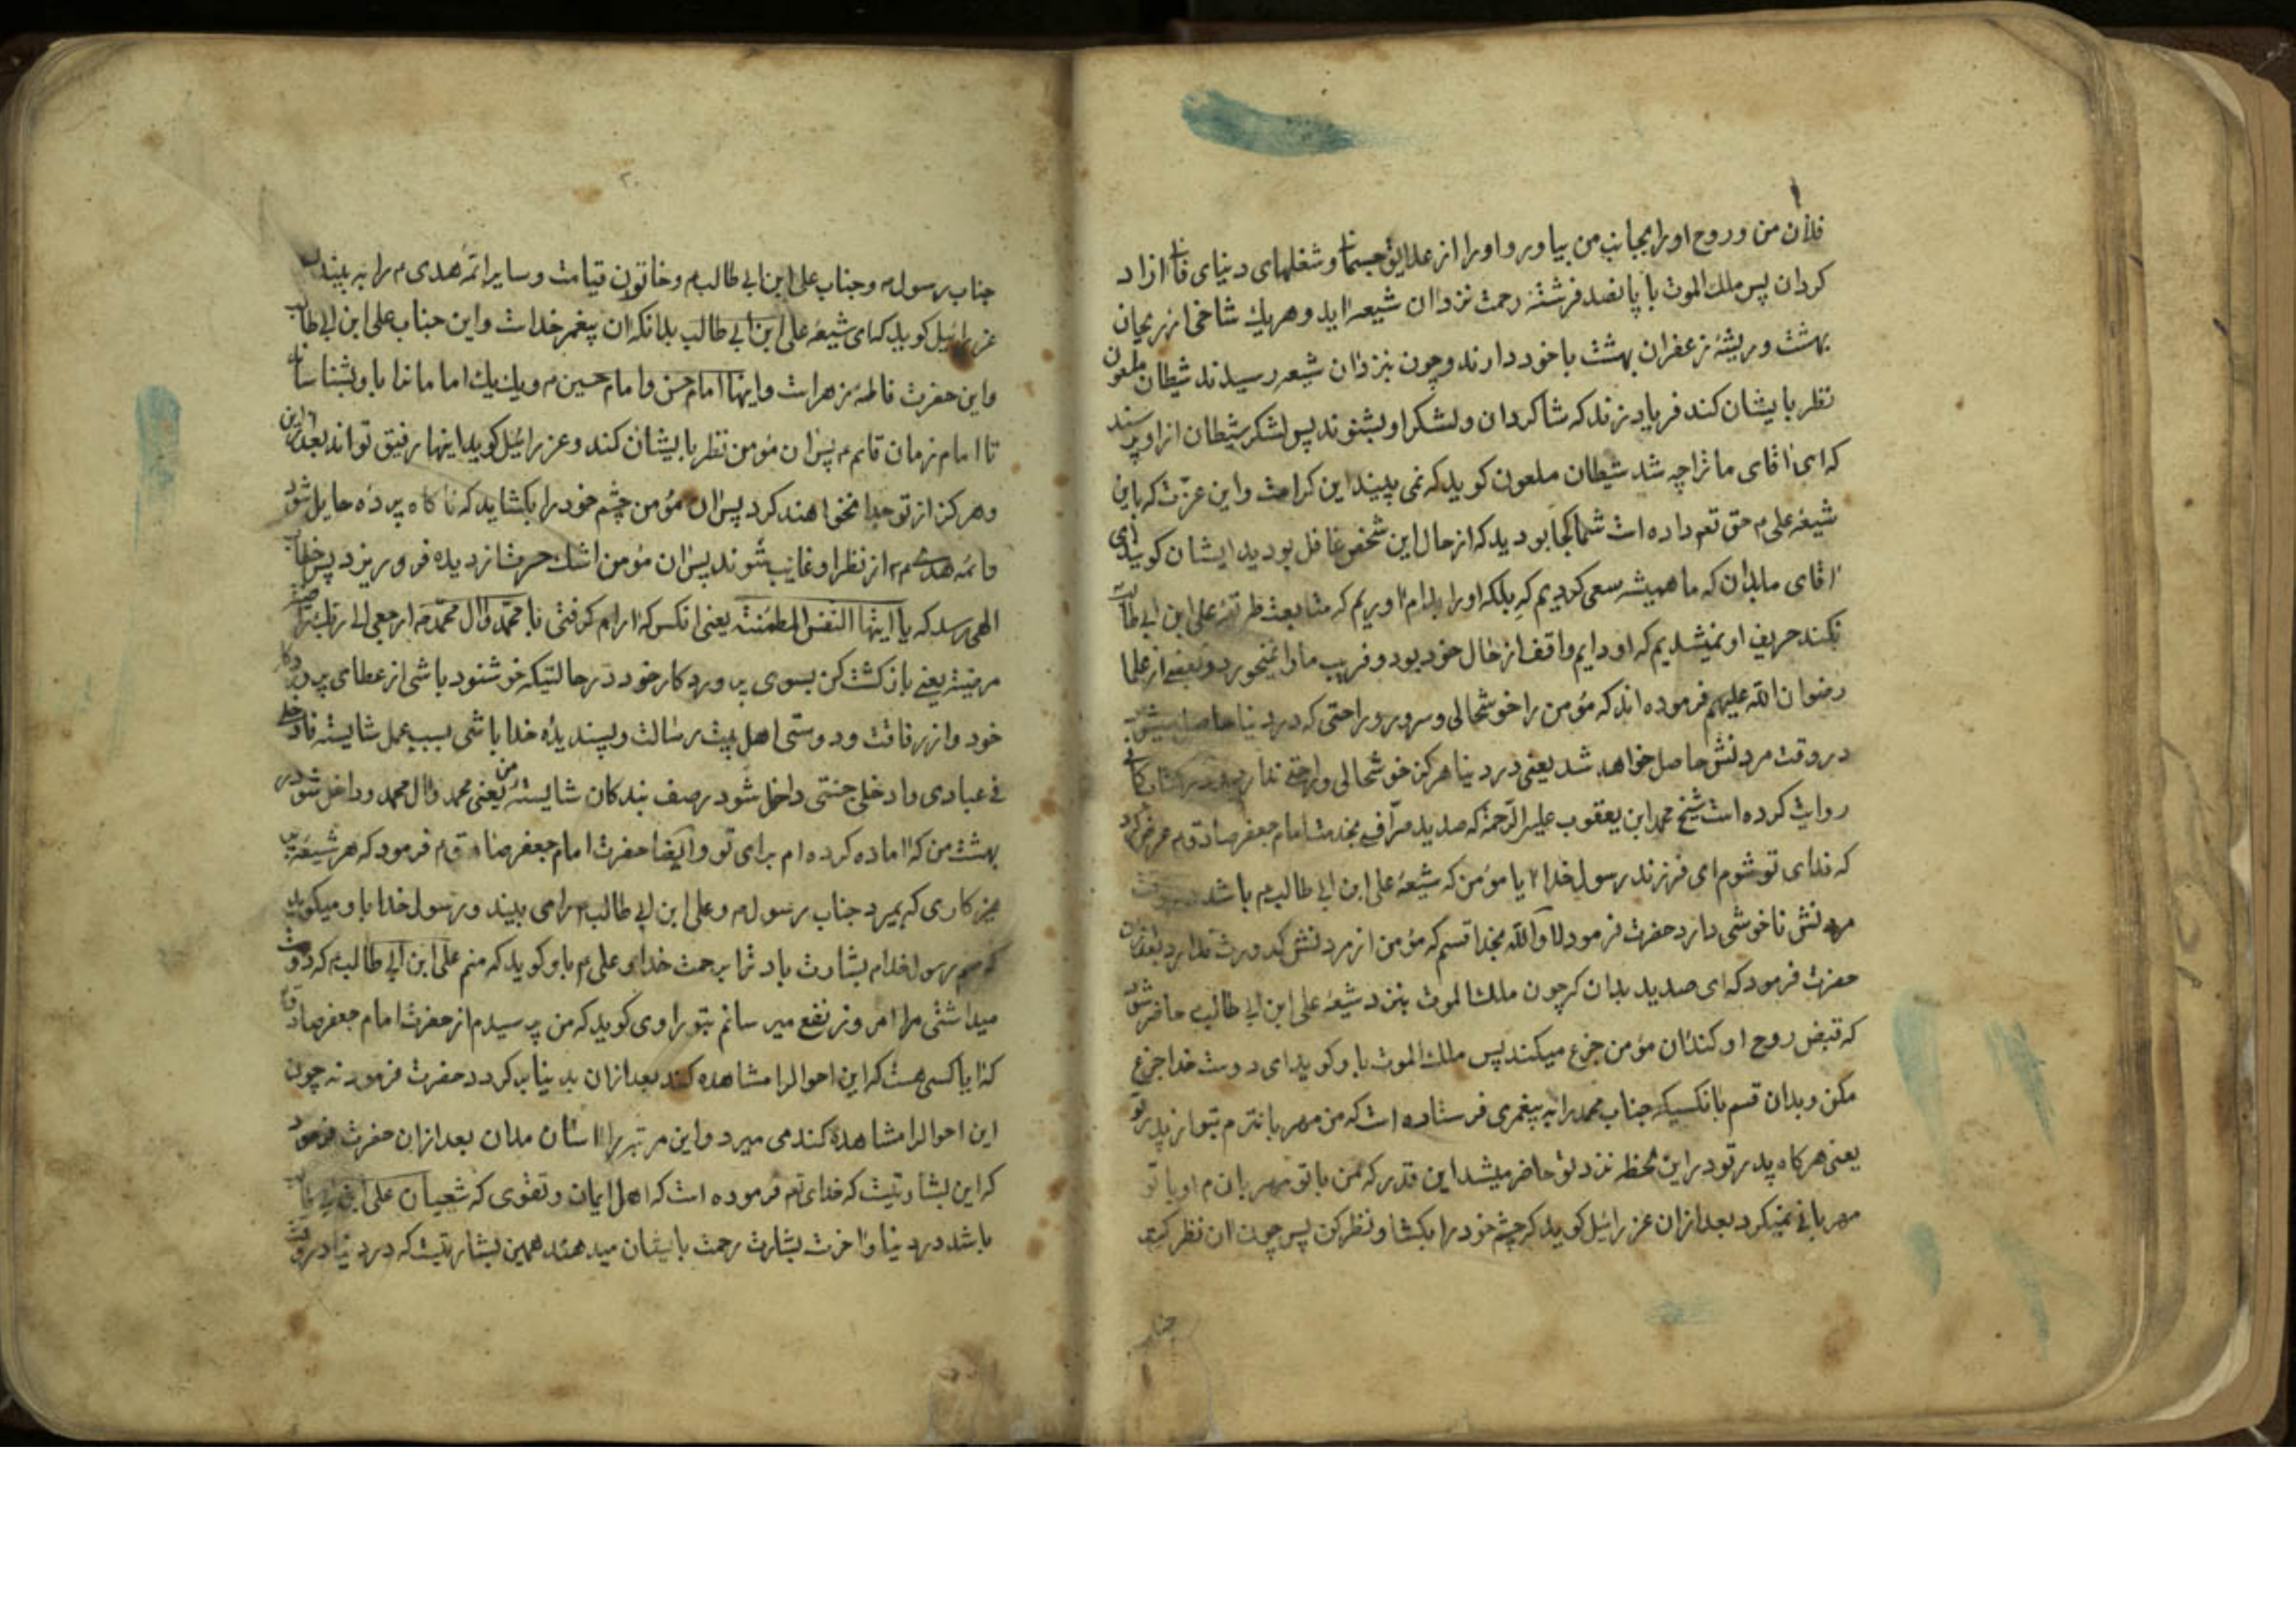 فلان من و روح او را بجانب من بیاور و او را از علایق جسمانی و شغلهای دنیای فانی ازاد
کردان پس ملک الموت با پانصد فرشتهٔ رحمت نزد ان شیعه اید و هریک شاخی از ریحان
بهشت و ریشهٔ زعفران بهشت با خود دارند و چون بنزد ان شیعه رسیدند شیطان ملعون
نظر بایشان کند فریاد زند که شاکردان و لشکر او بشنوند پس لشکر شیطان از او پرسند
که ای اقای ما ترا چه شد شیطان ملعون کوید که نمی بینید این کرامت و این عزّت که باین
شیعهٔ علی م حق تعم داده است شما کجا بودید که از حال این شخص غافل بودید ایشان کویند ای
اقای ما بدان که ما همیشه سعی کردیم که بلکه او را بدام اوریم که متابعت طریقهٔ علی ابن ابی طالب
نکند حریف او نمیشدیم که او دایم واقف از حال خود بود و فریب ما را نمیخورد و بعضی از علما
رضوان الله علیهم فرموده اند که مؤمن را خوشحالی و سرور و راحتی که در دنیا حاصل
در وقت مردنش حاصل خواهد شد یعنی در دنیا هرکز خوشحالی و راحتی ندارد
روایت کرده است شیخ محمد ابن یعقوب علیه الرّحمة که صدید صرّاف بخدمت امام جعفر صادق م عرض کرد
که فدای تو شوم ای فرزند رسول خدا ایا مؤمن که شیعهٔ علی ابن ابی طالب م باشد در وقت
مردنش ناخوشی دارد حضرت فرمود لا والله بخدا قسم که مؤمن از مردنش کدورت ندارد بعد از ان
حضرت فرمود که ای صدید بدان که چون ملک الموت بنزد شیعهٔ علی ابن ابی طالب حاضر شود
که قبض روح او کند ان مؤمن جزع میکند پس ملک الموت باو کوید ای دوست خدا جزع
مکن و بدان قسم بانکسیکه جناب محمد را به پیغمبری فرستاده است که من مهربانترم بتو از پدر تو
یعنی هرکاه پدر تو در این لحظه نزد تو حاضر میشد این قدر که من با تو مهربانم او با تو
مهربانی نمیکرد بعد از ان عزرائیل کوید که چشم خود را بکشا و نظر کن پس چون ان نظر کند
جناب
۲۰
جناب رسول م و جناب علی ابن ابی طالب م و خاتون قیامت و سایر ائمّه هدی م را به بیند
عزرائیل کوید که ای شیعهٔ علی ابن ابی طالب بدانکه ان پیغمبر خداست و این جناب علی ابن ابی طالب
و این حضرت فاطمهٔ زهراست و اینها امام حسن و امام حسین م و یک یک امامانرا باو بشناساند
تا امام زمان قایم م پس ان مؤمن نظر بایشان کند و عزرائیل کوید اینها رفیق تواند بعد از این
و هرکز از تو جدا نخواهند کرد پس ان مؤمن چشم خود را بکشاید که ناکاه پرده حایل شود
و ائمّه هدی م از نظر او غایب شوند پس ان مؤمن اشک حسرت از دیده فرو ریزد پس خطاب
الهی رسد که یا ایتها النفس المطمئنّة یعنی انکس که ارام کرفتی با محمّد و ال محمّد م ارجعی الی ربّک راضیة
مرضیّة یعنی بازکشت کن بسوی پروردکار خود در حالتیکه خوشنود باشی از عطای پروردکار
خود و از رفاقت و دوستی اهل بیت رسالت و پسندیدهٔ خدا باشی بسبب عمل شایسته فادخلی
فی عبادی وادخلی جنتی داخل شو در صف بندکان شایستهٔ من یعنی محمد و ال محمد و داخل شو در
بهشت من که اماده کرده ام برای تو و ایضا حضرت امام جعفر صادق م فرمود که هر شیعهٔ پر
هیزکاری که بمیرد جناب رسول م و علی ابن ابی طالب م را می بیند و رسول خدا باو میکوید
که منم رسول خدا م بشارت باد ترا برحمت خدا و علی م باو کوید که منم علی ابن ابی طالب م که دوست
میداشتی مرا امروز نفع میرسانم بتو راوی کوید که من پرسیدم از حضرت امام جعفر صادق م
که ایا کسی هست که این احوالرا مشاهده کند بعد از ان بدنیا بر کردد حضرت فرمود نه چون
این احوالرا مشاهده کند می میرد و این مرتبه را اسان مدان بعد از ان حضرت فرمود
که این بشارتیست که خدای تعم فرموده است که اهل ایمان و تقوی که شعیان علی ابن ابی طالب
باشد در دنیا و اخرت بشارت رحمت بایشان میدهند همین بشارتیست که در دنیا در وقت